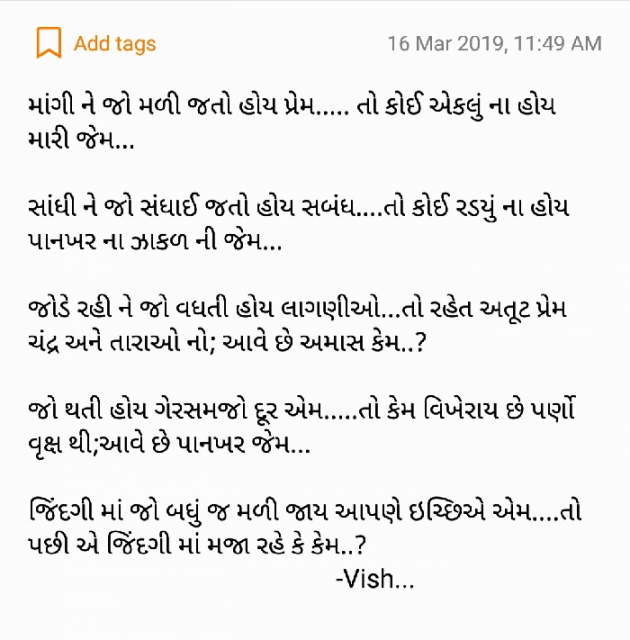 Add tags
16 Mar 2019, 11:49 AM
માંગી ને જો મળી જતો હોય પ્રેમ..... તો કોઈ એકલું ના હોય
મારી જેમ...
સાંધી ને જો સંધાઈ જતો હોય સબંધ....તો કોઈ રડયું ના હોય
પાનખર ના ઝાકળ ની જેમ...
જોડે રહી ને જો વધતી હોય લાગણીઓ...તો રહેત અતૂટ પ્રેમ
ચંદ્ર અને તારાઓ નો; આવે છે અમાસ કેમ..?
જો થતી હોય ગેરસમજો દૂર એમ.....તો કેમ વિખેરાય છે પર્ણો
વૃક્ષ થી;આવે છે પાનખર જેમ...
જિંદગી માં જો બધું જ મળી જાય આપણે ઇચ્છિએ એમ....તો
પછી એ જિંદગી માં મજા રહે કે કેમ..?
-Vish...